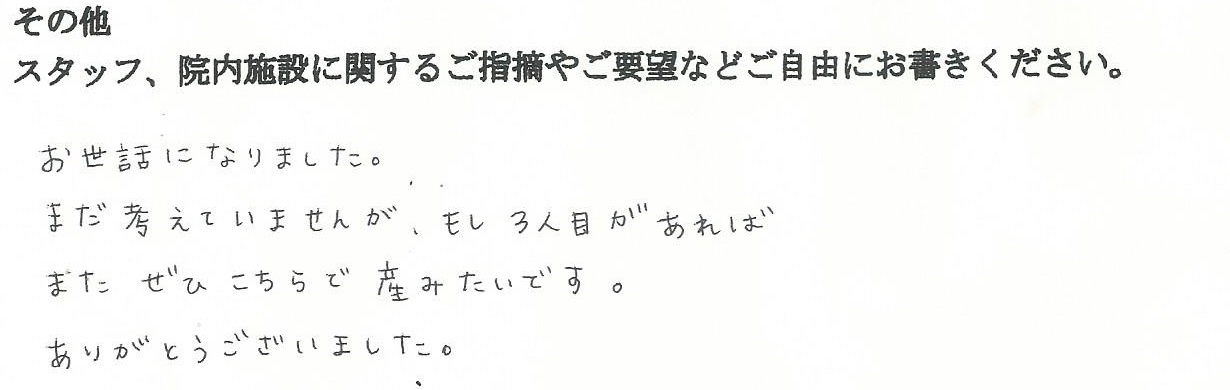 その他
スタッフ、院内施設に関するご指摘やご要望などご自由にお書きください。
お世話になりました。
まだ考えていませんが、もし3人目があれば
またぜひこちらで産みたいです。
ありがとうございました。